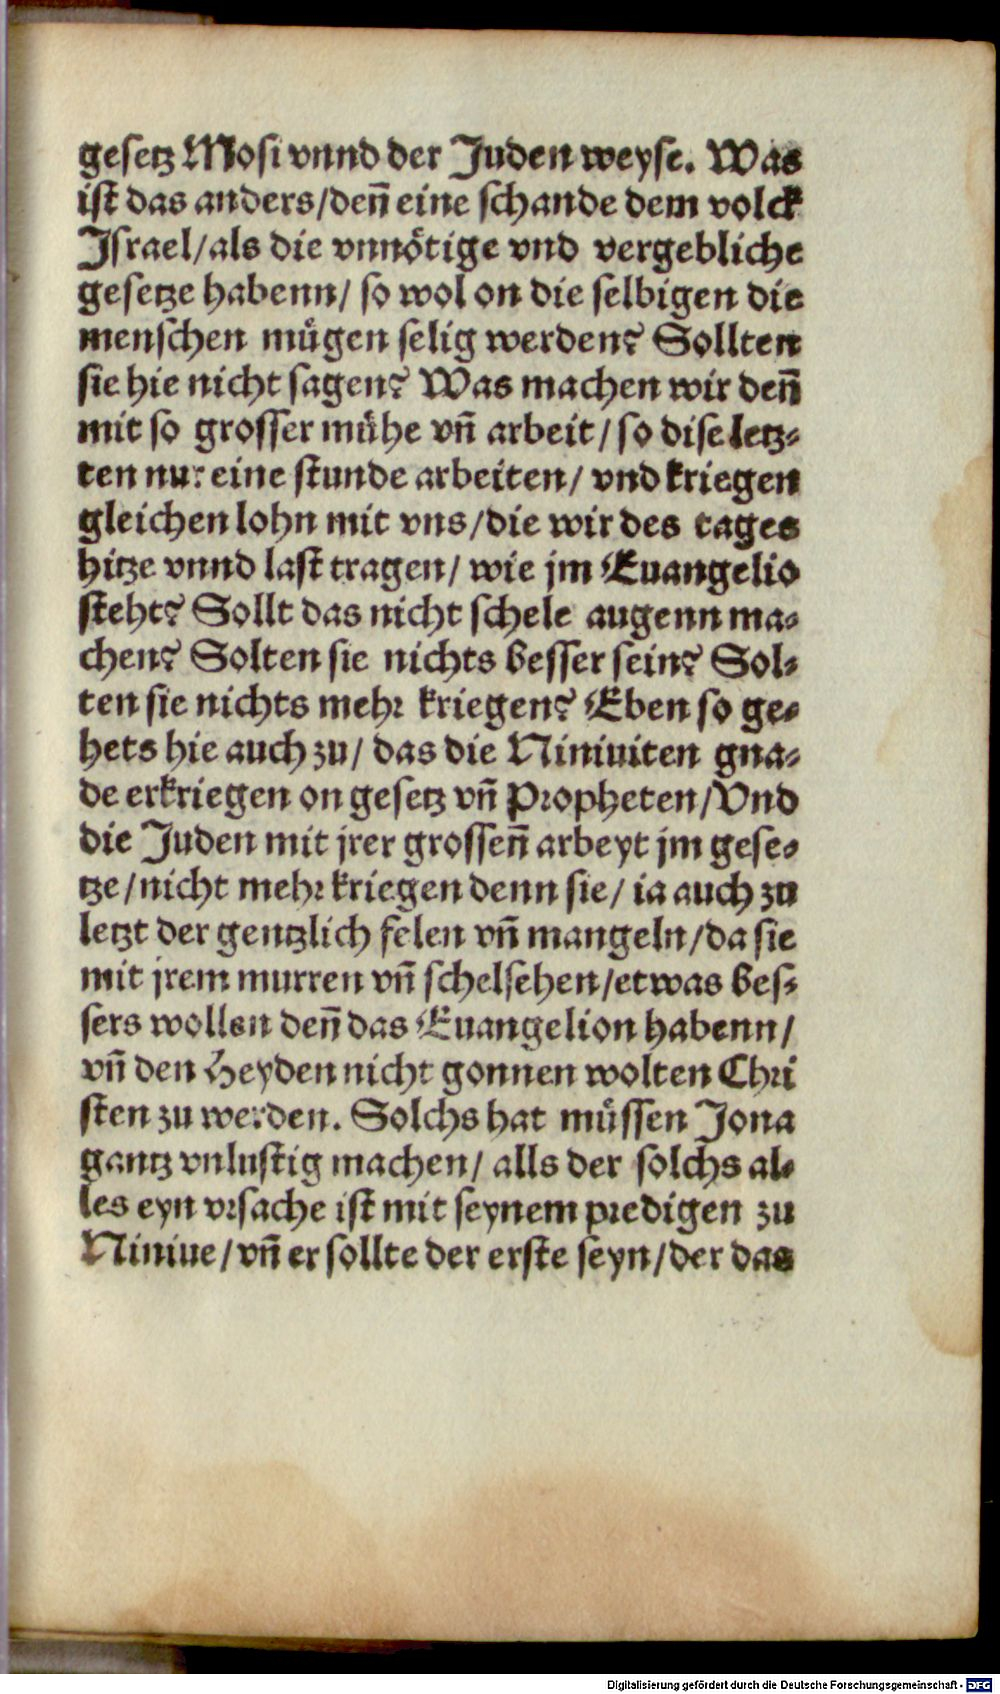 gesetz Mosi vnnd der Juden weyse. Was
ist das anders/denn̄ eine schande dem volck
Israel/als die vnnötige vnd vergebliche
gesetze habenn/ so wol on die selbigen die
menschen mügen selig werden? Sollten
sie hie nicht sagen? Was machen wir den̄
mit so grosser mühe vn̄ arbeit/so dise letz-
ten nur eine stunde arbeiten/ vnd kriegen
gleichen lohn mit vns/die wir des tages
hitze vnnd last tragen/ wie jm Euangelio
steht? Sollt das nicht schele augenn ma-
chen? Solten sie nichts besser sein? Sol-
ten sie nichts mehr kriegen? Eben so ge-
hets hie auch zu/ das die Niniuiten gna-
de erkriegen on gesetz vn̄ Propheten/Vnd
die Juden mit jrer grossen̄ arbeyt jm gese-
tze/nicht mehr kriegen denn sie/ ia auch zu
letzt der gentzlich felen vn̄ mangeln/da sie
mit jrem murren vn̄ schelsehen/etwas bes-
sers wollen den̄ das Euangelion habenn/
vn̄ den Heyden nicht gonnen wolten Chri
sten zu werden. Solchs hat müssen Jona
gantz vnlustig machen/ alls der solchs al-
les eyn vrsache ist mit seynem predigen zu
Niniue/vn̄ er sollte der erste seyn/der das
Digitalisierung gefördert durch die Deutsche Forschungsgemeinschaft - DFG